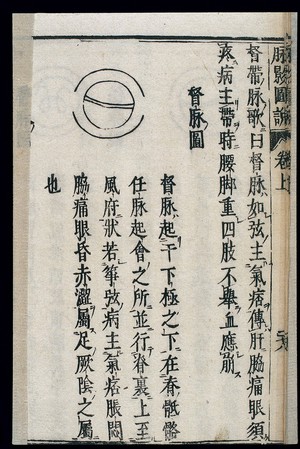 脉影圖說 卷上
督帶脉歌曰督脉如弦主氣病傳肝脇痛眼須
疼病主帶時腰脚重四肢不舉血應崩
督脉圖
督脉起于下極之下在脊骶髂
任脉起會之所並行脊裏上至
風府狀若筝弦病主氣痞脹悶
脇痛眼昏赤澀屬足厥陰之屬
也